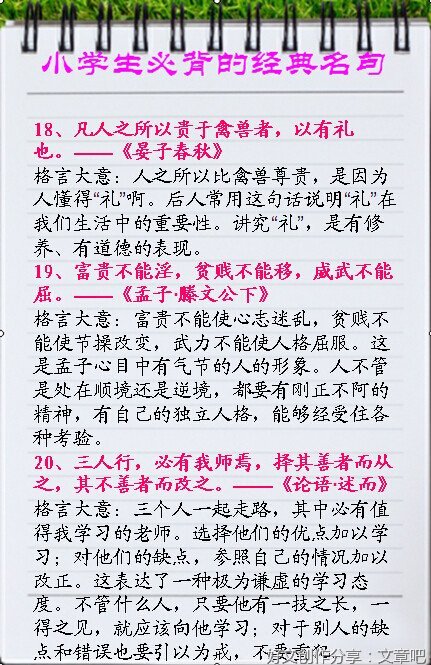 小学生必背的经典名句
18、凡人之所以贵于禽兽者，以有礼
也。——《晏子春秋》
格言大意：人之所以比禽兽尊贵，是因为
人懂得“礼”啊。后人常用这句话说明“礼”在
我们生活中的重要性。讲究“礼”，是有修
养、有道德的表现。
19、富贵不能淫，贫贱不能移，威武不能
屈。——《孟子·滕文公下》
格言大意：富贵不能使心志迷乱，贫贱不
能使节操改变，武力不能使人格屈服。这
是孟子心目中有气节的人的形象。人不管
是处在顺境还是逆境，都要有刚正不阿的
精神，有自己的独立人格，能够经受住各
种考验。
20、三人行，必有我师焉，择其善者而从
之，其不善者而改之。——《论语·述而》
格言大意：三个人一起走路，其中必有值
得我学习的老师。选择他们的优点加以学
习；对他们的缺点，参照自己的情况加以
改正。这表达了一种极为谦虚的学习态
度。不管什么人，只要他有一技之长，一
得之见，就应该向他学习；对于别人的缺
点和错误也要引以为戒，不要
好文创作分享：文章吧